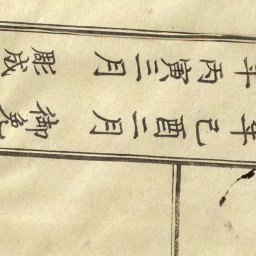 年己酉二月 御免
年丙寅三月 彫成